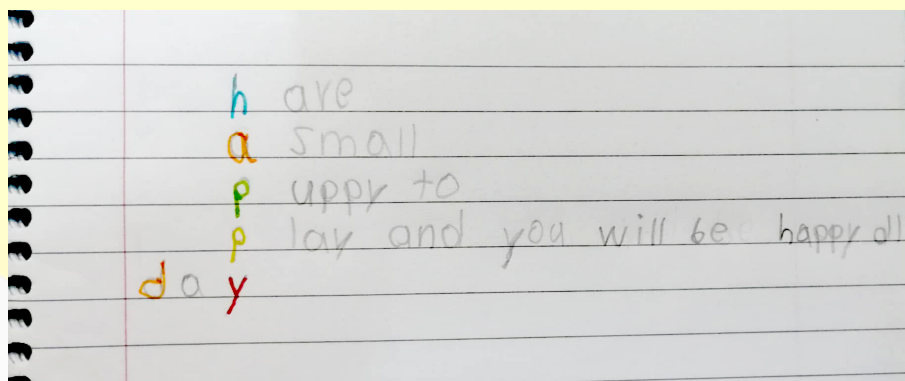 h are
a small
p uppy to
p lay and you will be happy all
day